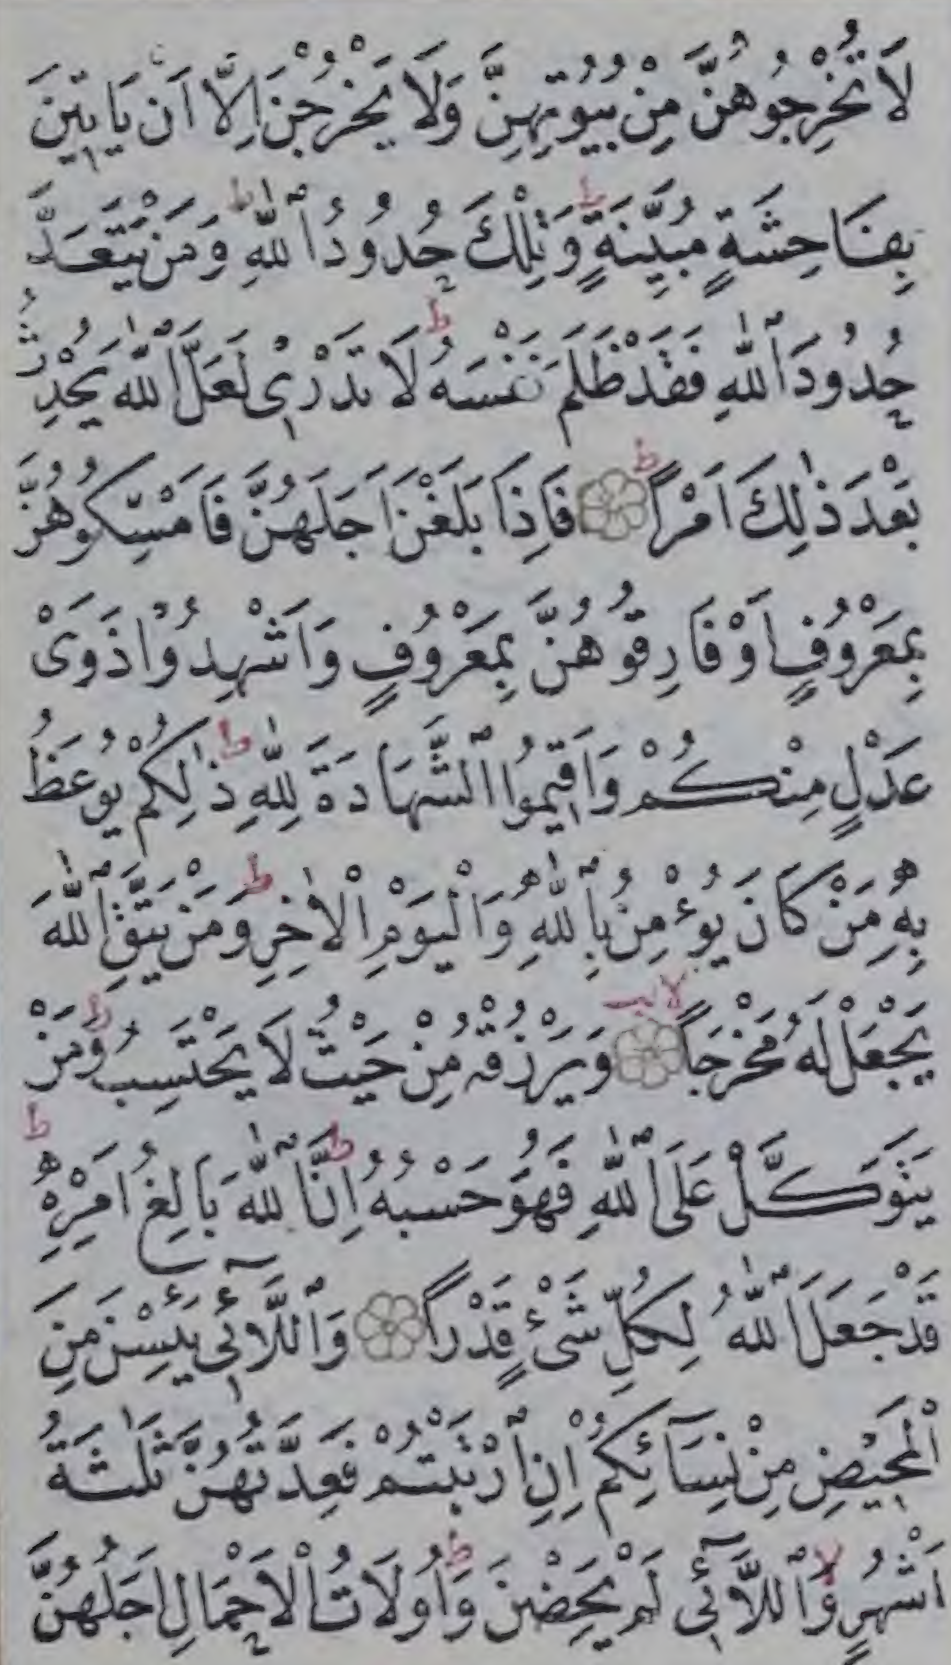 لَا تُخْرِجُوهُنَّ مِنْ بُيُوتِهِنَّ وَلَا يَخْرُجْنَ اِلَّا اَنْ يَاْتٖينَ
بِفَاحِشَةٍ مُبَيِّنَةٍ ط وَتِلْكَ حُدُودُ ٱللّٰهِ ط وَمَنْ يَتَعَدَّ
حُدُودَ ٱللّٰهِ فَقَدْ ظَلَمَ نَفْسَهُ ط لَا تَدْرٖى لَعَلَّ ٱللّٰهَ يُحْدِثُ
بَعْدَ ذٰلِكَ اَمْرًا ط فَاِذَا بَلَغْنَ اَجَلَهُنَّ فَاَمْسِكُوهُنَّ
بِمَعْرُوفٍ اَوْ فَارِقُوهُنَّ بِمَعْرُوفٍ وَاَشْهِدُوا ذَوَىْ
عَدْلٍ مِنْكُمْ وَاَقٖيمُوا ٱلشَّهَادَةَ لِلّٰهِ ط ذٰلِكُمْ يُوعَظُ
بِهٖ مَنْ كَانَ يُؤْمِنُ بِٱللّٰهِ وَٱلْيَوْمِ الْاٰخِرِ ط وَمَنْ يَتَّقِ ٱللّٰهَ
يَجْعَلْ لَهُ مَخْرَجًا لا وَيَرْزُقْهُ مِنْ حَيْثُ لَا يَحْتَسِبُ ط وَمَنْ
يَتَوَكَّلْ عَلَى ٱللّٰهِ فَهُوَ حَسْبُهُ ط اِنَّ ٱللّٰهَ بَالِغُ اَمْرِهٖ ط
قَدْ جَعَلَ ٱللّٰهُ لِكُلِّ شَىْءٍ قَدْرًا وَٱللَّآئٖى يَئِسْنَ مِنَ
الْمَحٖيضِ مِنْ نِسَآئِكُمْ اِنِ ٱرْتَبْتُمْ فَعِدَّتُهُنَّ ثَلٰثَةُ
اَشْهُرٍ لا وَٱللَّآئٖى لَمْ يَحِضْنَ ط وَاُولَاتُ الْاَحْمَالِ اَجَلُهُنَّ